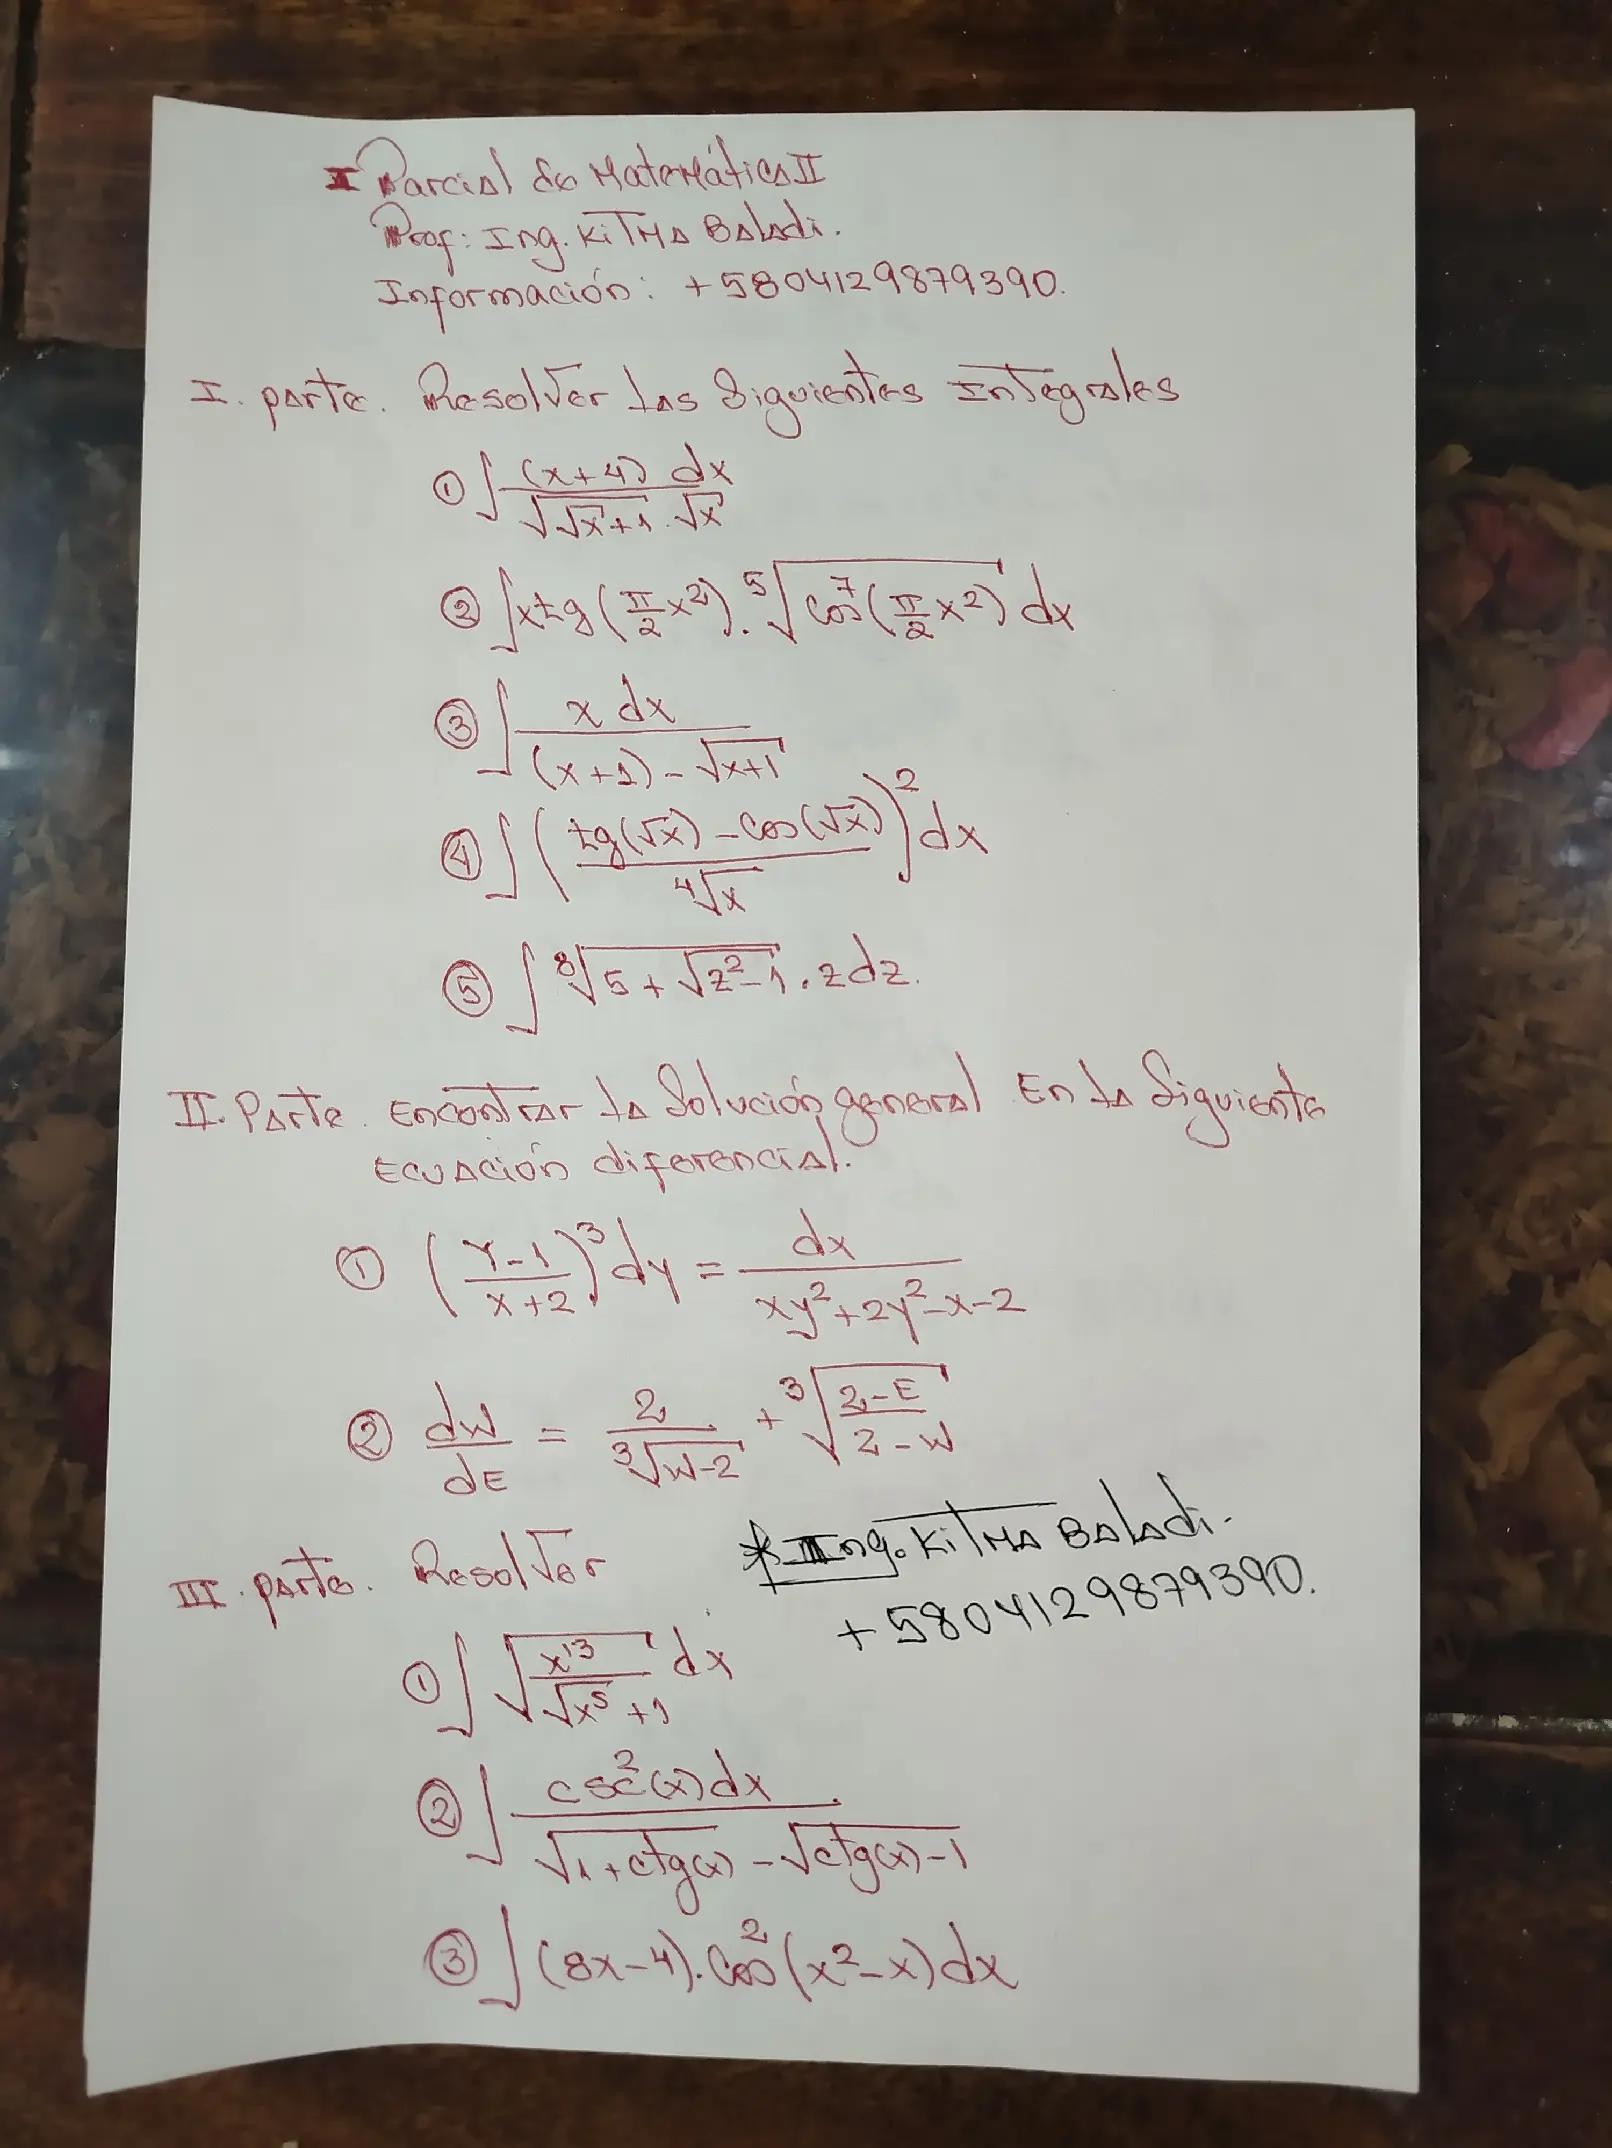 I Parcial de Matemática II
Prof: Ing. Kitma Baladi.
Información: +5804129879390.
I. parte. Resolver las siguientes Integrales
① ∫ (x+4) dx / (√(√x+1) · √x)
② ∫ x tg(π/2 x²) · ⁵√(cos⁷(π/2 x²)) dx
③ ∫ x dx / ((x+1) - √(x+1))
④ ∫ ((tg(√x) - cos(√x)) / ⁴√x)² dx
⑤ ∫ ⁸√(5 + √(z²-1)) · z dz.
II. Parte. Encontrar la solución general En la siguiente
Ecuación diferencial.
① ((y-1)/(x+2))³ dy = dx / (xy²+2y²-x-2)
② dW/dE = 2/³√(W-2) + ³√((2-E)/(2-W))
III. parte. Resolver
* Ing. Kitma Baladi.
+5804129879390.
① ∫ √(x¹³/(√x⁵ +1)) dx
② ∫ csc²(x) dx / (√(1+ctg(x)) - √(ctg(x)-1))
③ ∫ (8x-4) · cos²(x²-x) dx